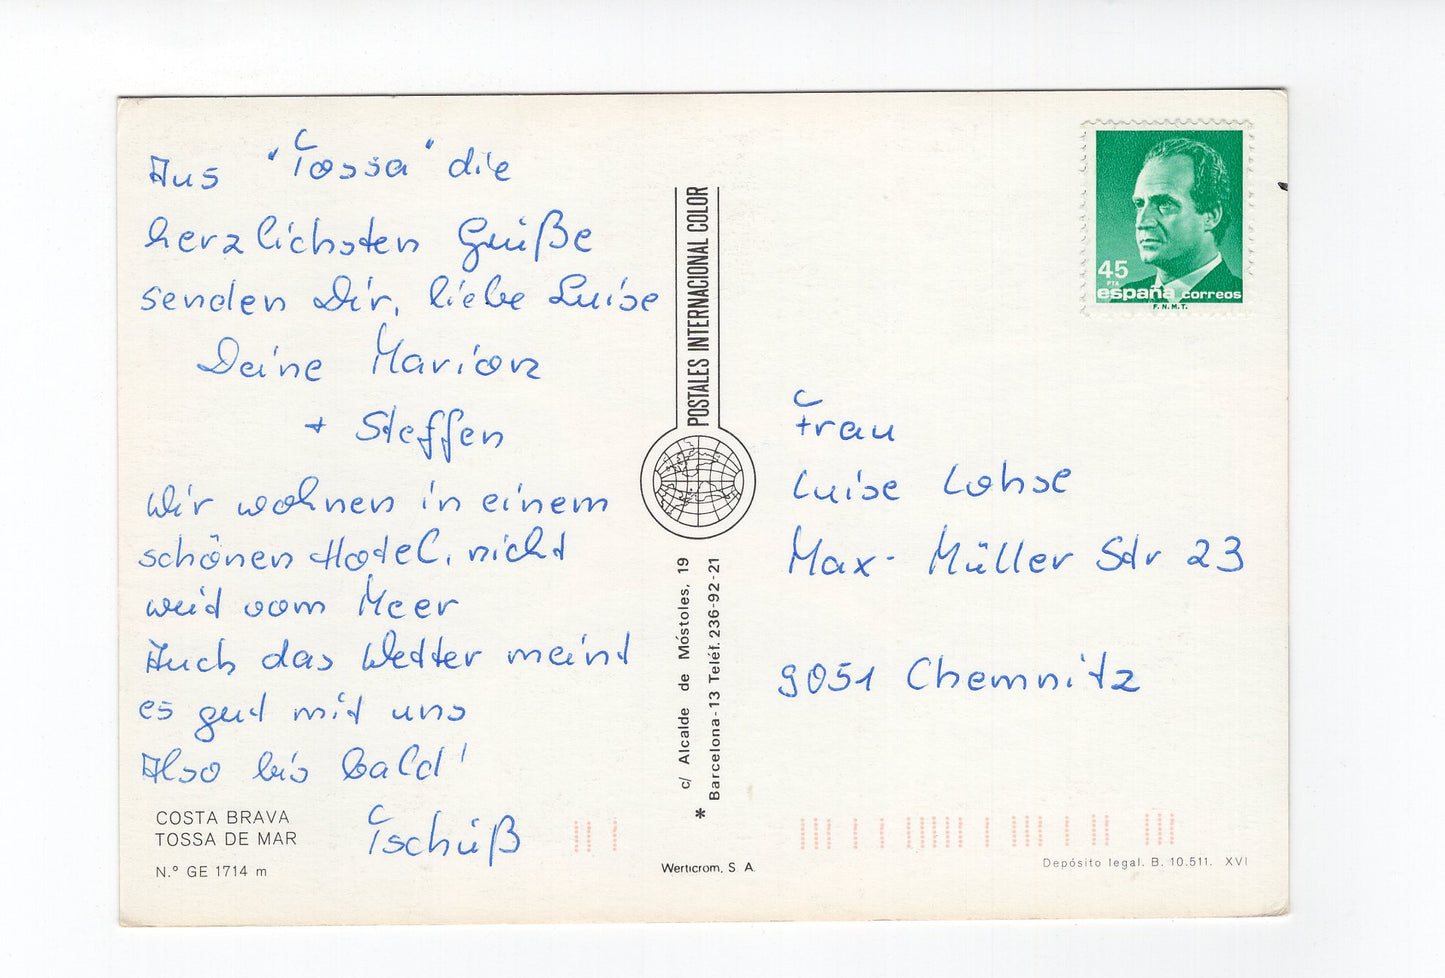 Aus "Tossa" die
herzlichsten Grüße
senden Dir, liebe Luise
Deine Marion
+ Steffen
Wir wohnen in einem
schönen Hotel, nicht
weit vom Meer
Auch das Wetter meint
es gut mit uns
Also bis bald!
Tschüß
COSTA BRAVA
TOSSA DE MAR
N.° GE 1714 m
POSTALES INTERNACIONAL COLOR
c/ Alcalde de Móstoles, 19
Barcelona-13 Teléf. 236-92-21
*
Werticrom, S. A.
45
PTA
españa correos
F.N.M.T.
Frau
Luise Lohse
Max-Müller Str 23
9051 Chemnitz
Depósito legal. B. 10.511. XVI